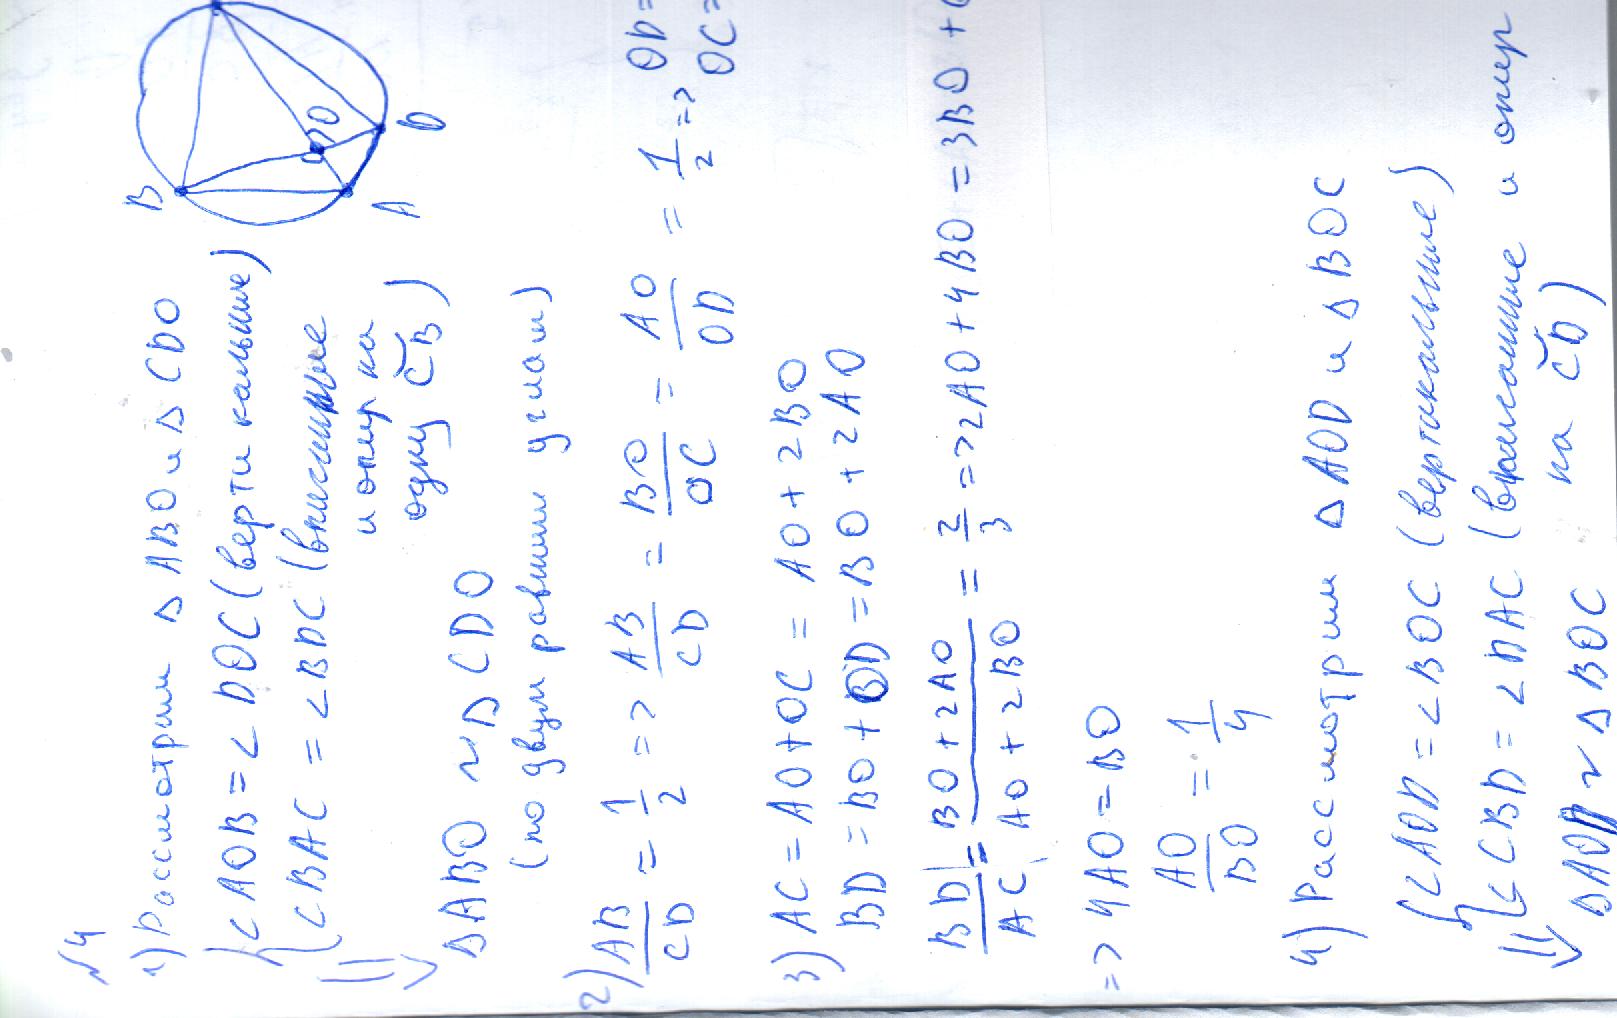 №4
1) Рассмотрим △ABO и △CDO
∠AOB = ∠DOC (вертикальные)
∠BAC = ∠BDC (вписанные
и опир на
одну C͝B)
⇓
△ABO ~ △CDO
(по двум равным углам)
2) AB/CD = 1/2 => AB/CD = BO/OC = AO/OD = 1/2 => OD=
OC=
3) AC = AO + OC = AO + 2BO
BD = BO + OD = BO + 2AO
BD/AC = (BO + 2AO)/(AO + 2BO) = 2/3 => 2AO + 4BO = 3BO +
=> 4AO = BO
AO/BO = 1/4
4) Рассмотрим △AOD и △BOC
∠AOD = ∠BOC (вертикальные)
∠CBD = ∠DAC (вписанные и опир
на C͝D)
⇓
△AOD ~ △BOC
B
A
D
O